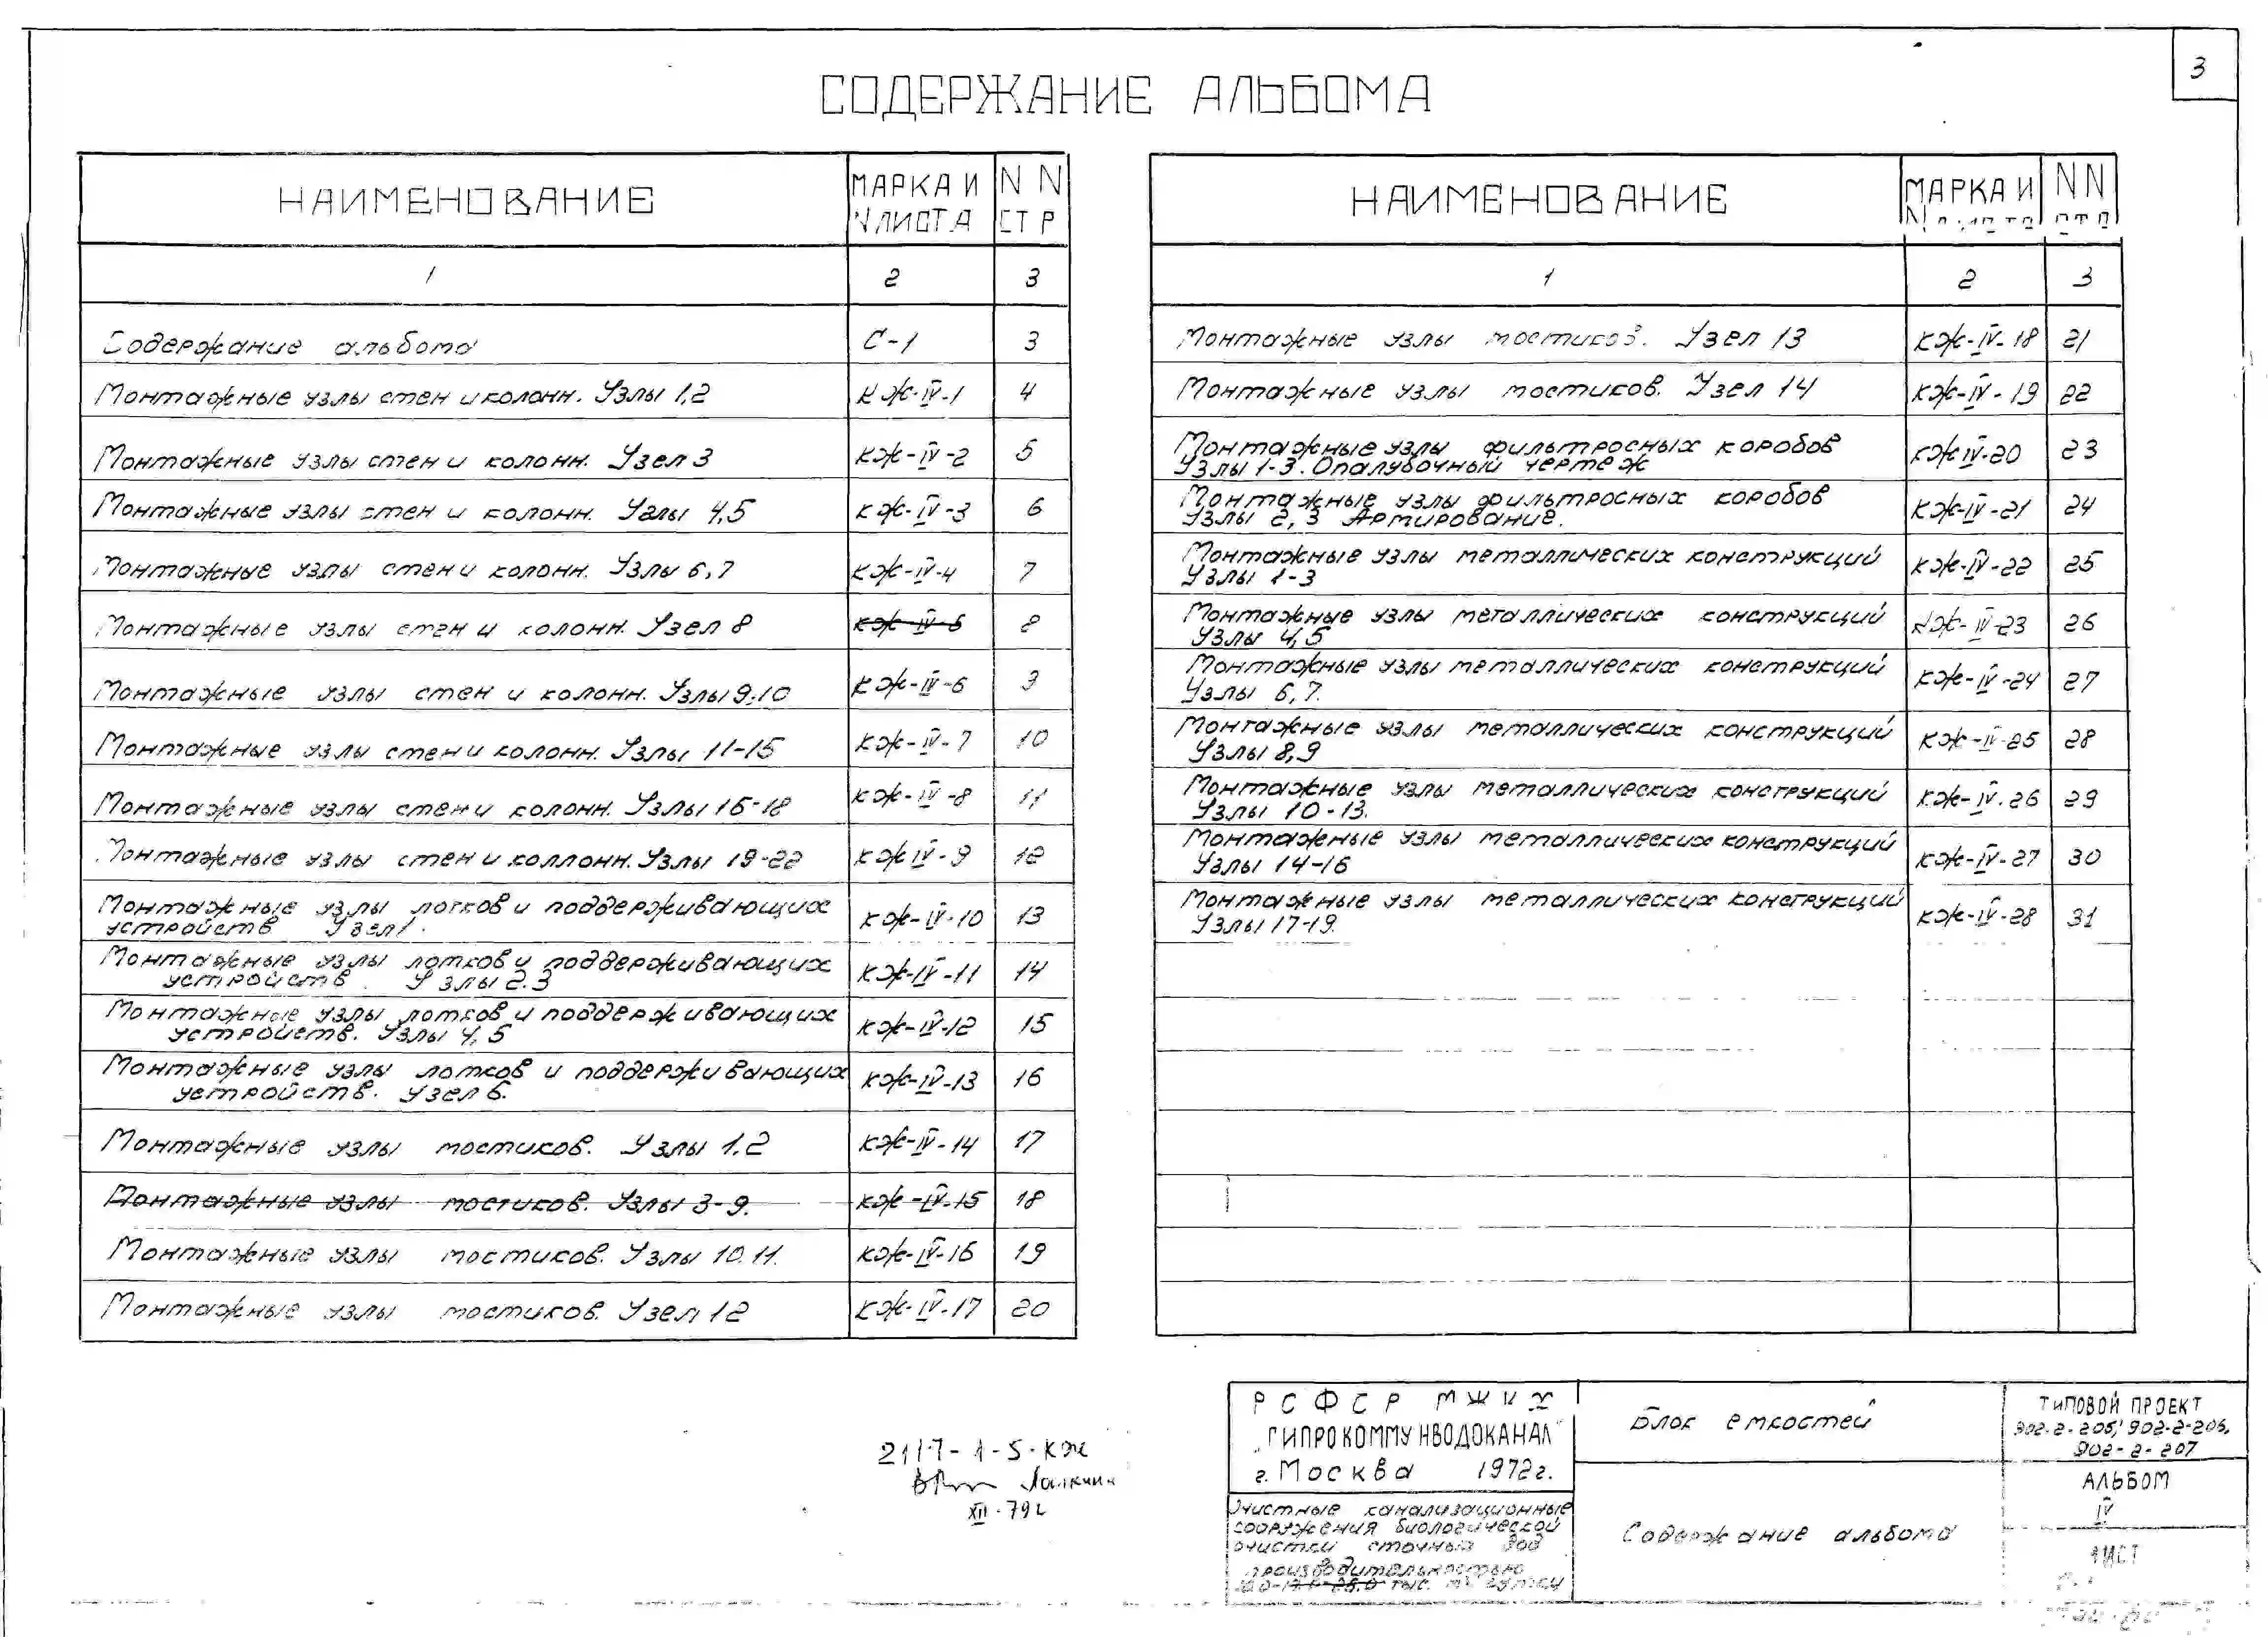 3
СОДЕРЖАНИЕ АЛЬБОМА
НАИМЕНОВАНИЕ
МАРКА И
N ЛИСТА
N N
СТР
1 2 3
Содержание альбома С-1 3
Монтажные узлы стен и колонн. Узлы 1,2 КЖ-IV-1 4
Монтажные узлы стен и колонн. Узел 3 КЖ-IV-2 5
Монтажные узлы стен и колонн. Узлы 4,5 КЖ-IV-3 6
Монтажные узлы стен и колонн. Узлы 6,7 КЖ-IV-4 7
Монтажные узлы стен и колонн. Узел 8 КЖ-IV-5 8
Монтажные узлы стен и колонн. Узлы 9;10 КЖ-IV-6 9
Монтажные узлы стен и колонн. Узлы 11-15 КЖ-IV-7 10
Монтажные узлы стен и колонн. Узлы 16-18 КЖ-IV-8 11
Монтажные узлы стен и коллонн. Узлы 19-22 КЖ IV-9 12
Монтажные узлы лотков и поддерживающих
устройств Узел 1. КЖ-IV-10 13
Монтажные узлы лотков и поддерживающих
устройств. Узлы 2.3 КЖ-IV-11 14
Монтажные узлы лотков и поддерживающих
устройств. Узлы 4,5 КЖ-IV-12 15
Монтажные узлы лотков и поддерживающих
устройств. Узел 6. КЖ-IV-13 16
Монтажные узлы мостиков. Узлы 1.2 КЖ-IV-14 17
Монтажные узлы мостиков. Узлы 3-9. КЖ-IV-15 18
Монтажные узлы мостиков. Узлы 10.11. КЖ-IV-16 19
Монтажные узлы мостиков. Узел 12 КЖ-IV-17 20
НАИМЕНОВАНИЕ
МАРКА И
N листа
N N
стр
1 2 3
Монтажные узлы мостиков. Узел 13 КЖ-IV-18 21
Монтажные узлы мостиков. Узел 14 КЖ-IV-19 22
Монтажные узлы фильтросных коробов
Узлы 1-3. Опалубочный чертеж КЖ IV-20 23
Монтажные узлы фильтросных коробов
Узлы 2,3 Армирование. КЖ-IV-21 24
Монтажные узлы металлических конструкций
Узлы 1-3 КЖ-IV-22 25
Монтажные узлы металлических конструкций
Узлы 4,5 КЖ-IV-23 26
Монтажные узлы металлических конструкций
Узлы 6,7. КЖ-IV-24 27
Монтажные узлы металлических конструкций
Узлы 8,9 КЖ-IV-25 28
Монтажные узлы металлических конструкций
Узлы 10-13. КЖ-IV-26 29
Монтажные узлы металлических конструкций
Узлы 14-16 КЖ-IV-27 30
Монтажные узлы металлических конструкций
Узлы 17-19. КЖ-IV-28 31
2117-1-5-КЖ
XII-79г
РСФСР МЖКХ
"ГИПРОКОММУНВОДОКАНАЛ"
г. Москва 1972г.
Очистные канализационные
сооружения биологической
очистки сточных вод
производительностью
тыс. м³ сутки
Блок емкостей
Содержание альбома
ТИПОВОЙ ПРОЕКТ
902-2-205; 902-2-206,
902-2-207
АЛЬБОМ
IV
ЛИСТ